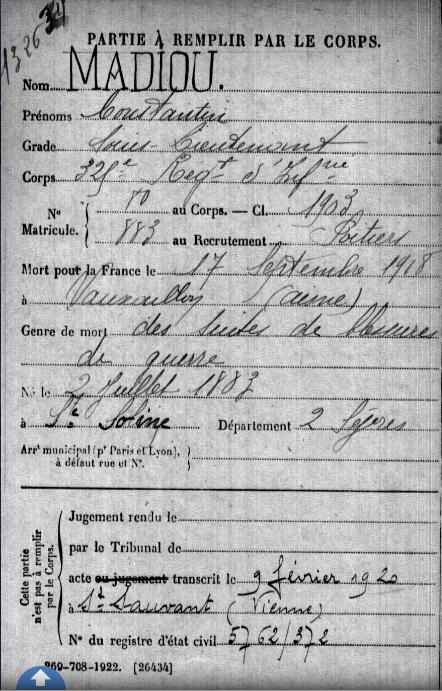 PARTIE À REMPLIR PAR LE CORPS.
Nom MADIOU.
Prénoms Constantin
Grade Sous-Lieutenant
Corps 325e Regt d'Infrie
No Matricule. { 70 au Corps. — Cl. 1903
883 au Recrutement Poitiers
Mort pour la France le 17 Septembre 1918
à Vauxaillon (aisne)
Genre de mort des suites de blessures
de guerre
Né le 2 Juillet 1883
à Ste Soline Département 2 Sèvres
Arrt municipal (pr Paris et Lyon),
à défaut rue et No.
Cette partie n'est pas à remplir par le Corps.
Jugement rendu le
par le Tribunal de
acte ou jugement transcrit le 9 février 1920
à St Sauvant (Vienne)
No du registre d'état civil 5762/372
869-708-1922. [26434]